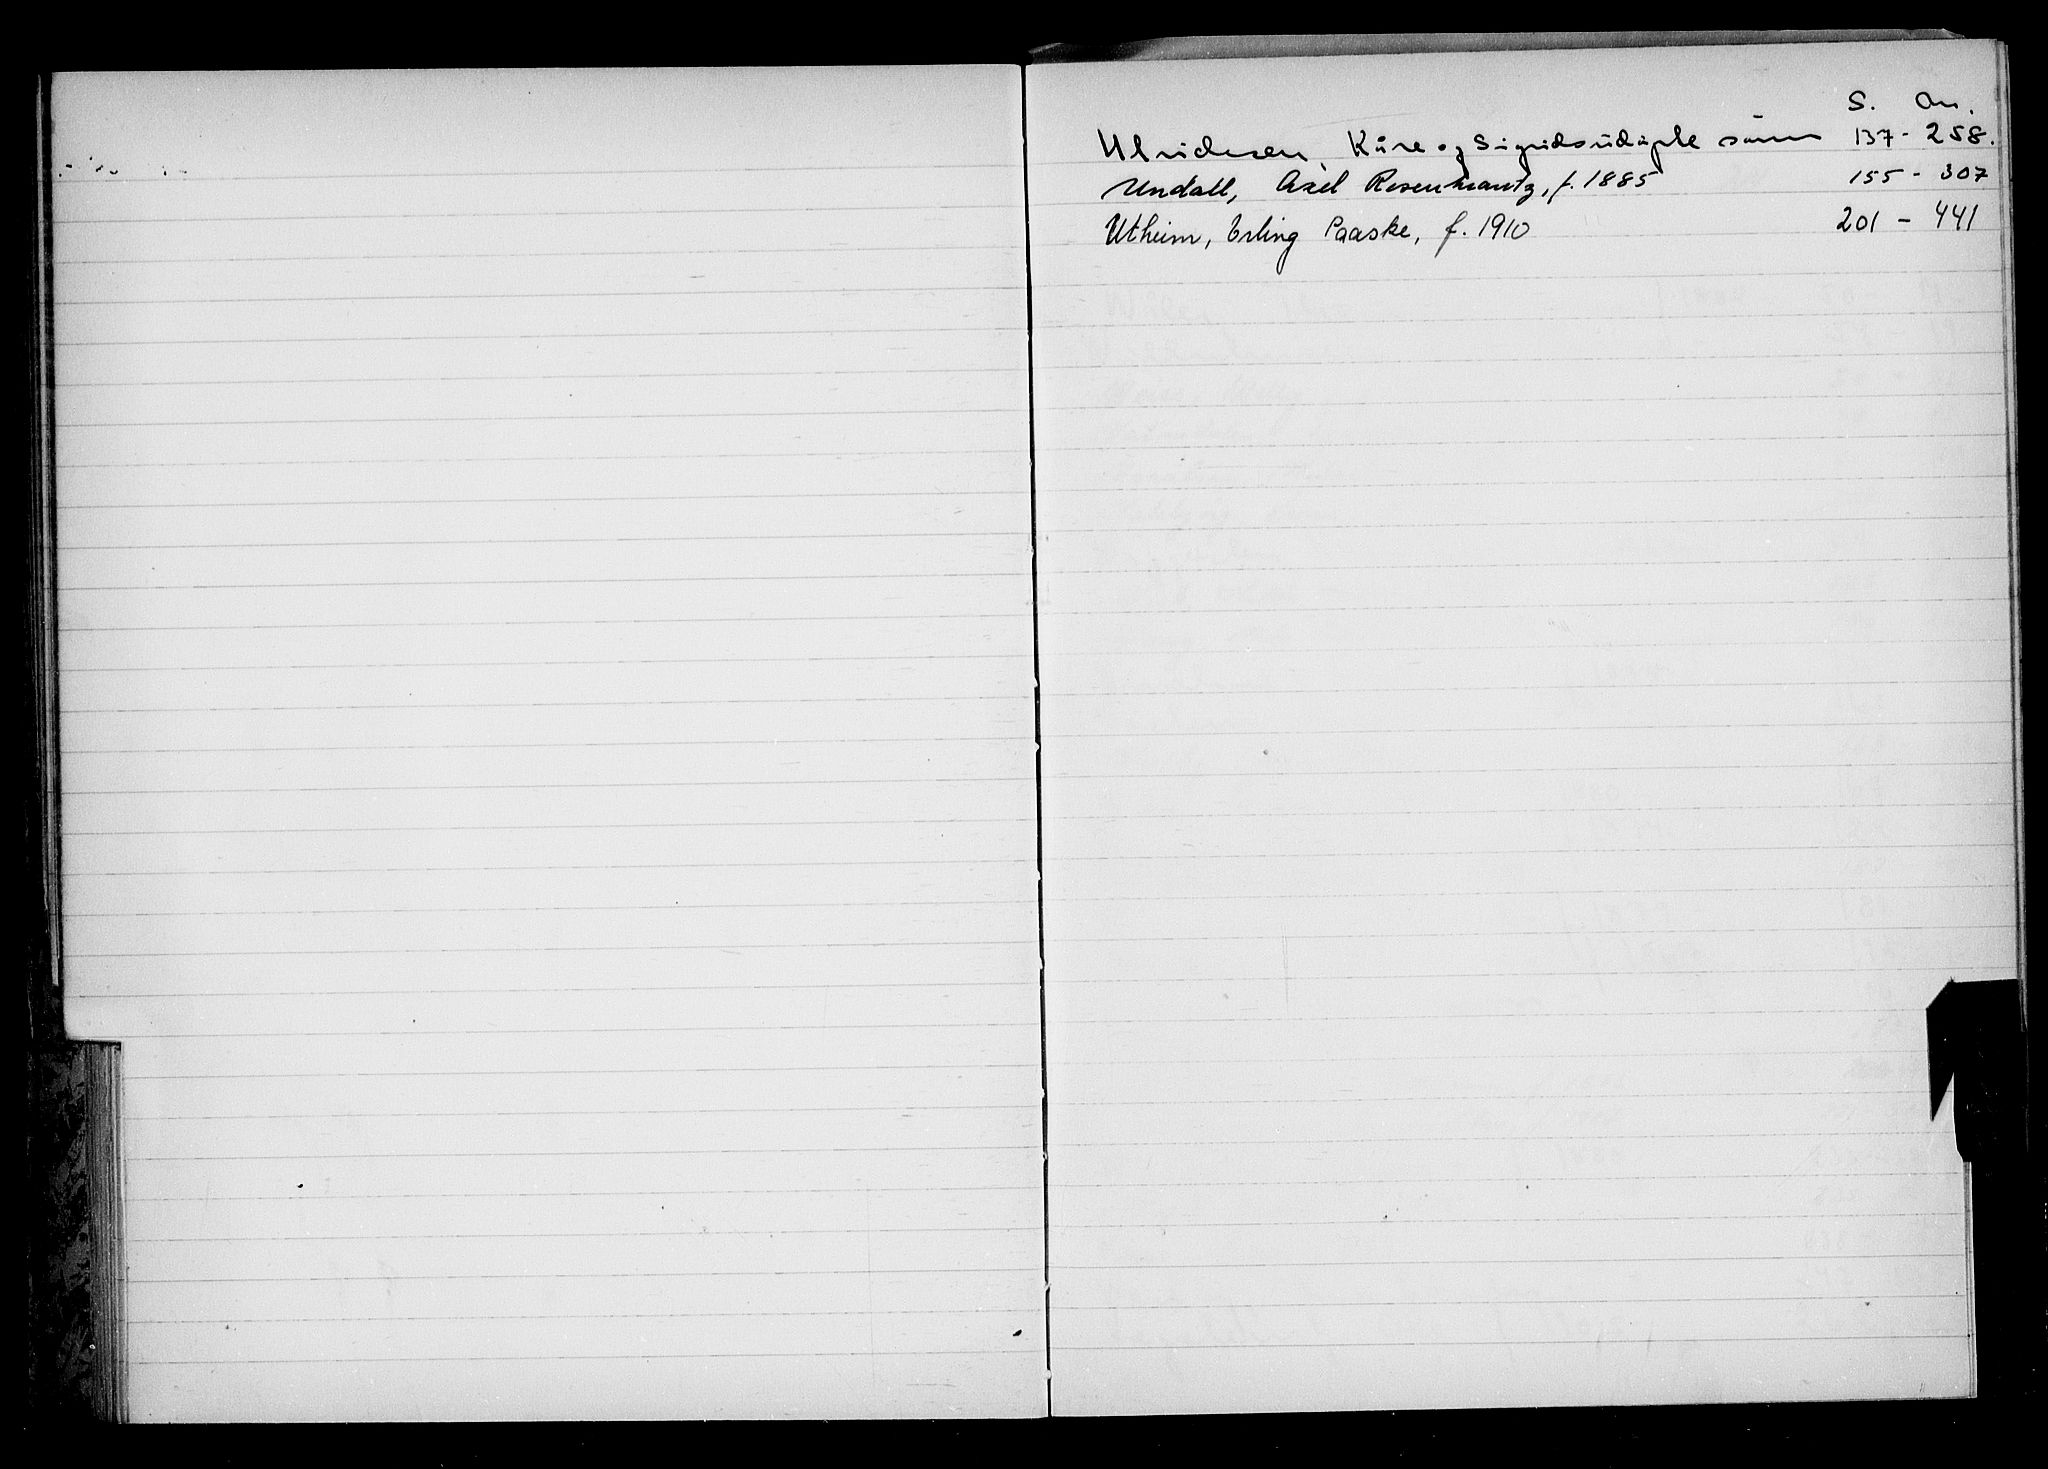 S. An.
Ulricksen, Kåre og Sigrids udøpte sønn 137 - 258.
Undall, Axel Rosenkrantz, f. 1885 155 - 307
Utheim, Erling Paaske, f. 1910 201 - 441